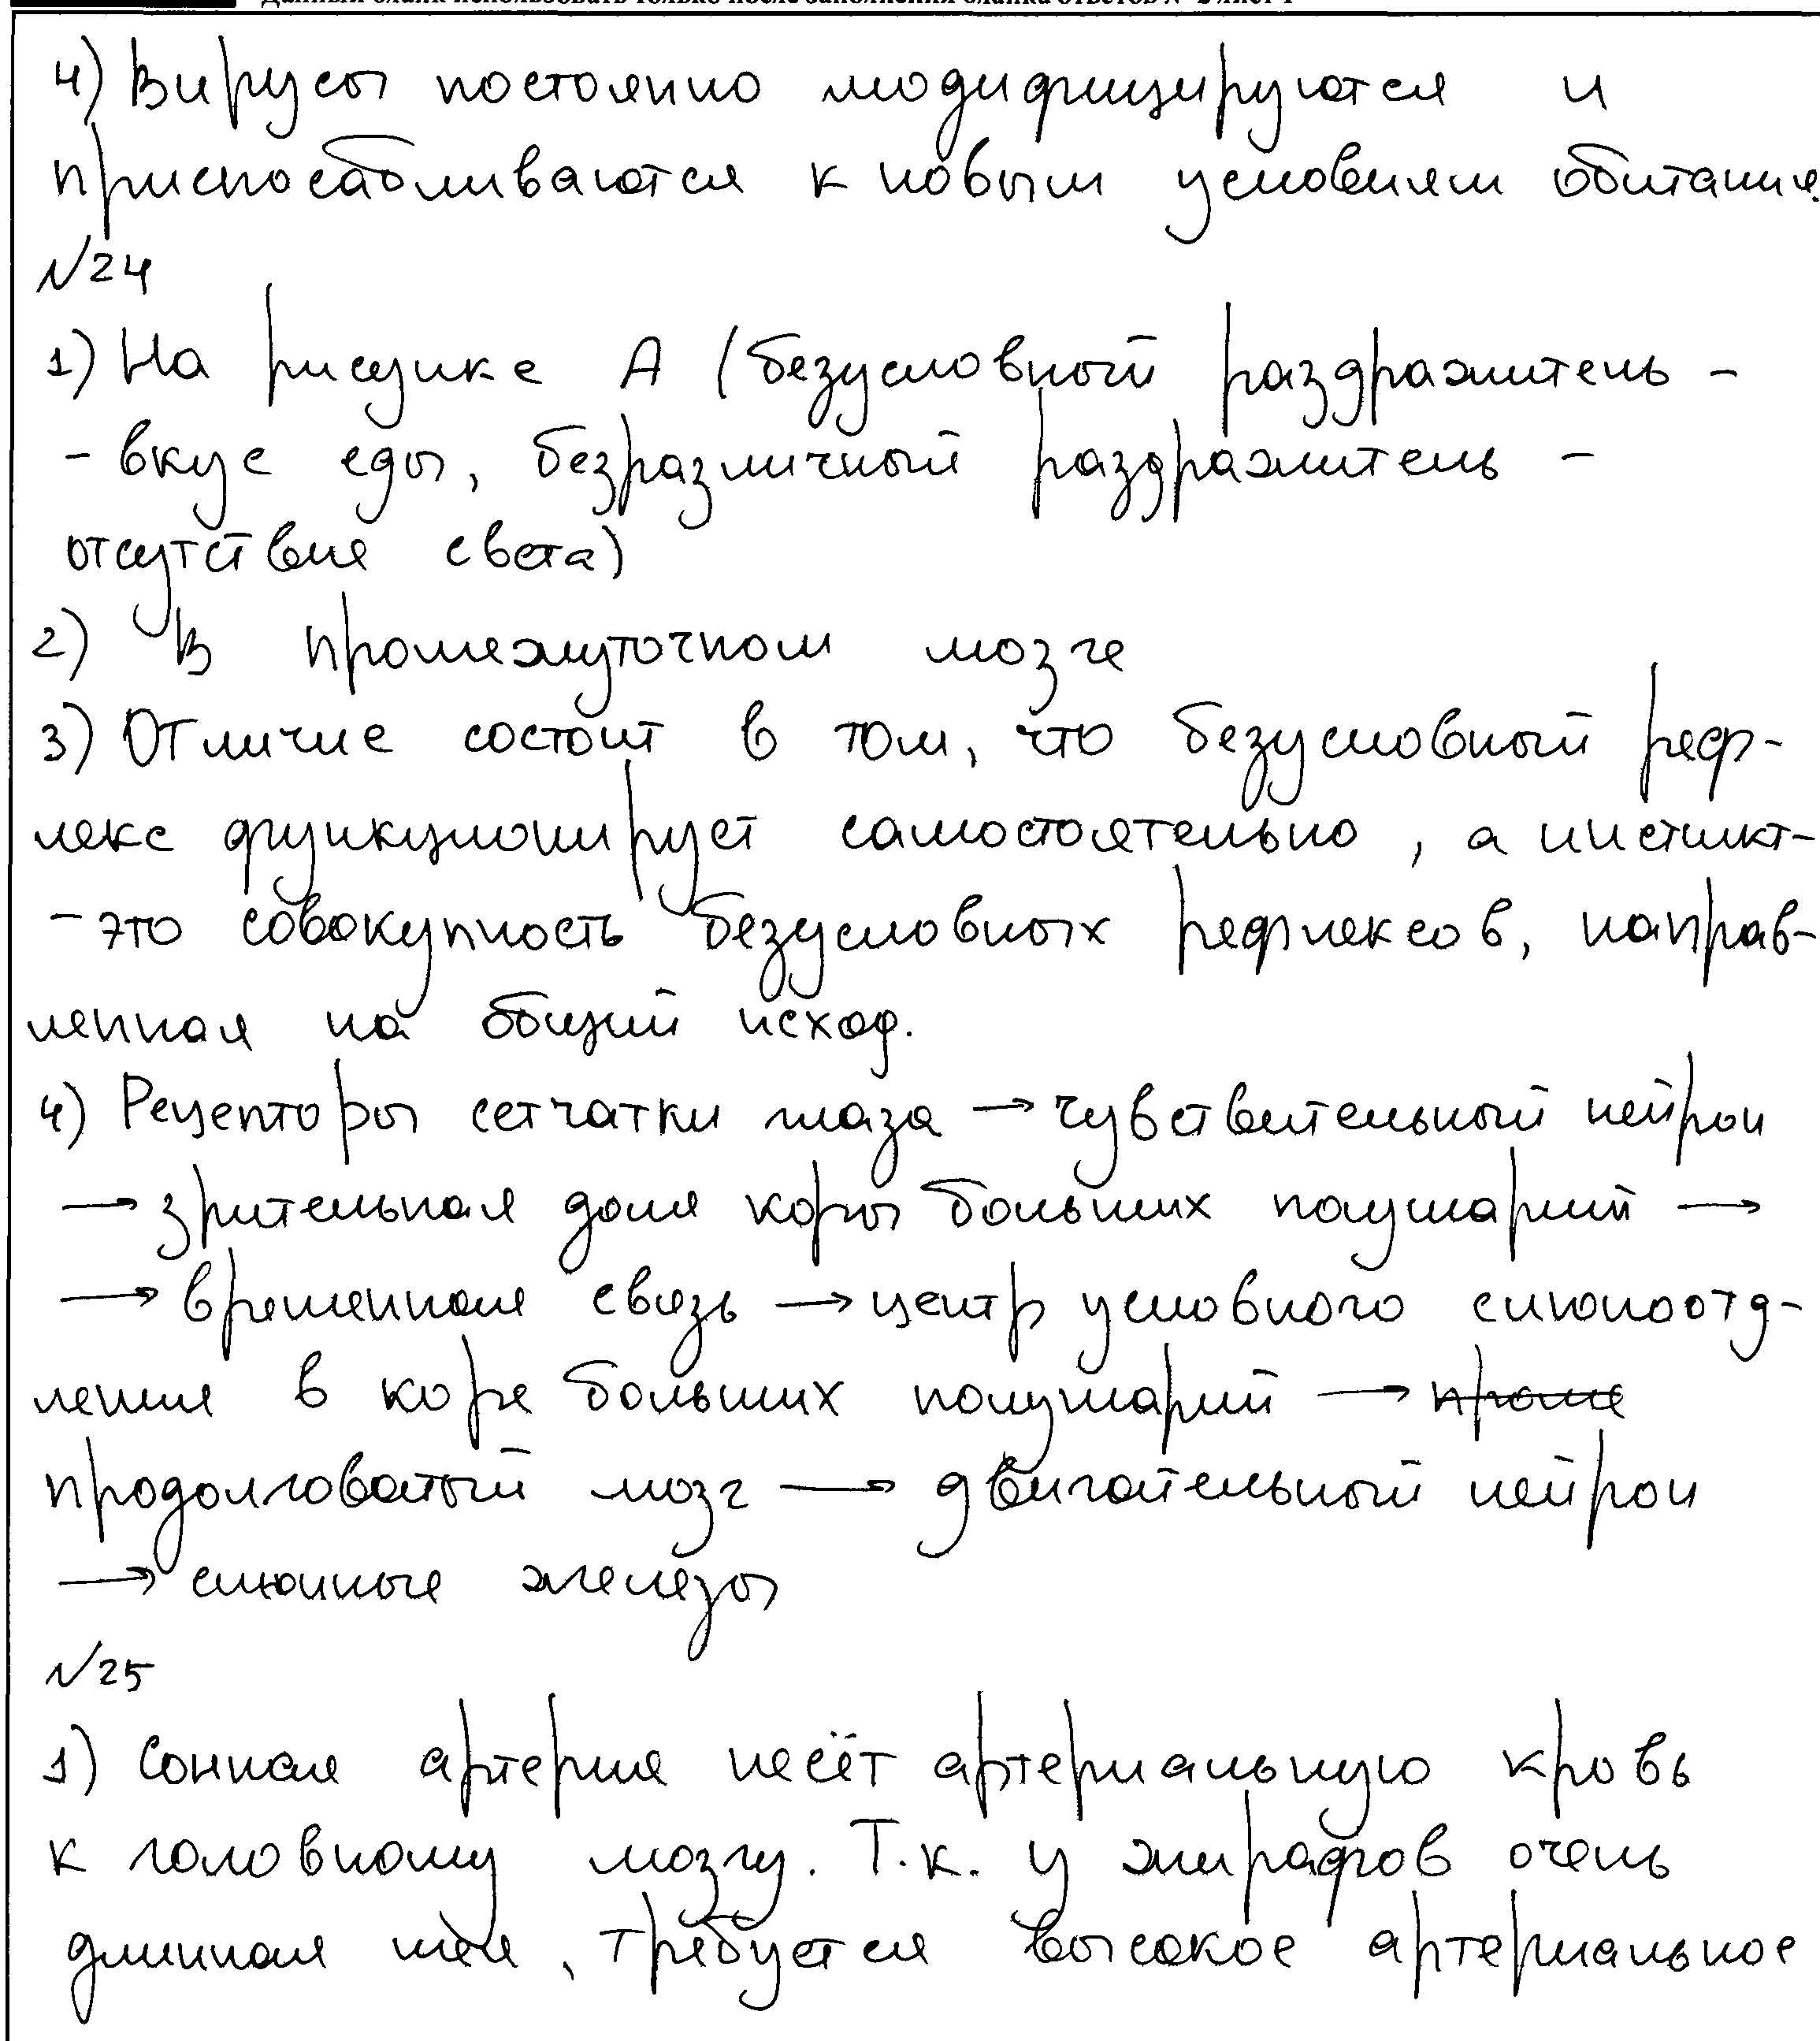 4) Вирусы постоянно модифицируются и
приспосабливаются к новым условиям обитания.
№24
1) На рисунке А (безусловный раздражитель -
- вкус еды, безразличный раздражитель -
отсутствие света)
2) В промежуточном мозге
3) Отличие состоит в том, что безусловный реф-
лекс функционирует самостоятельно, а инстинкт-
- это совокупность безусловных рефлексов, направ-
ленная на общий исход.
4) Рецепторы сетчатки глаза → чувствительный нейрон
→ зрительная доля коры больших полушарий →
→ временная связь → центр условного слюноотд-
ления в коре больших полушарий →
продолговатый мозг → двигательный нейрон
→ слюнные железы
№25
1) Сонная артерия несёт артериальную кровь
к головному мозгу. Т.к. у жирафов очень
длинная шея, требуется высокое артериальное